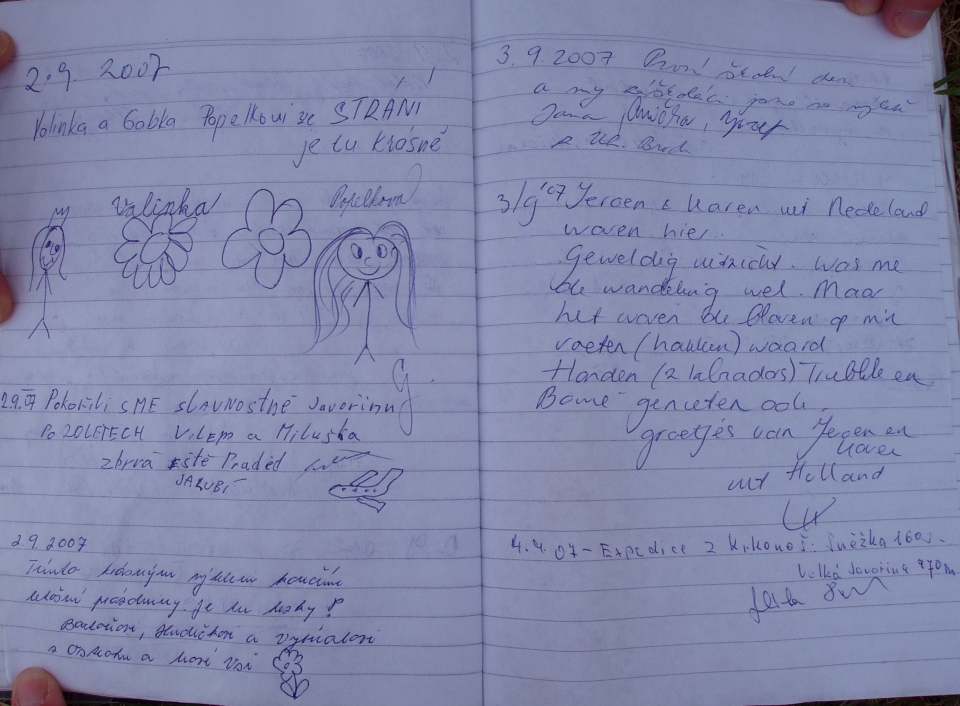 2.9. 2007
Valinka a Gabka Popelkovi ze STRÁNÍ
je tu krásně
Valinka
Popelkova
G.
2.9.07 Pokořili SME slavnostně Javořinu
Po 20LETECH Vilém a Miluška
zbývá eště Praděd
2.9.2007
Tímto krásným výletem končíme
letošní prázdniny. je tu hezky!
a
3.9.2007 První školní den
a my jsme na výletě
Jana
z Uh. Brodu
3/9 '07 Jeroen & Karen uit Nederland
waren hier.
Geweldig uitzicht. Was me
de wandeling wel. Maar
het waren de blaren op m'n
voeten (hakken) waard
Honden (2 labradors) Trubble en
genieten ook.
groetjes van Jeroen en
Karen
uit Holland
4.4.07 - Expedice z Krkonoš. Sněžka 1602
Velká Javořina 970 m